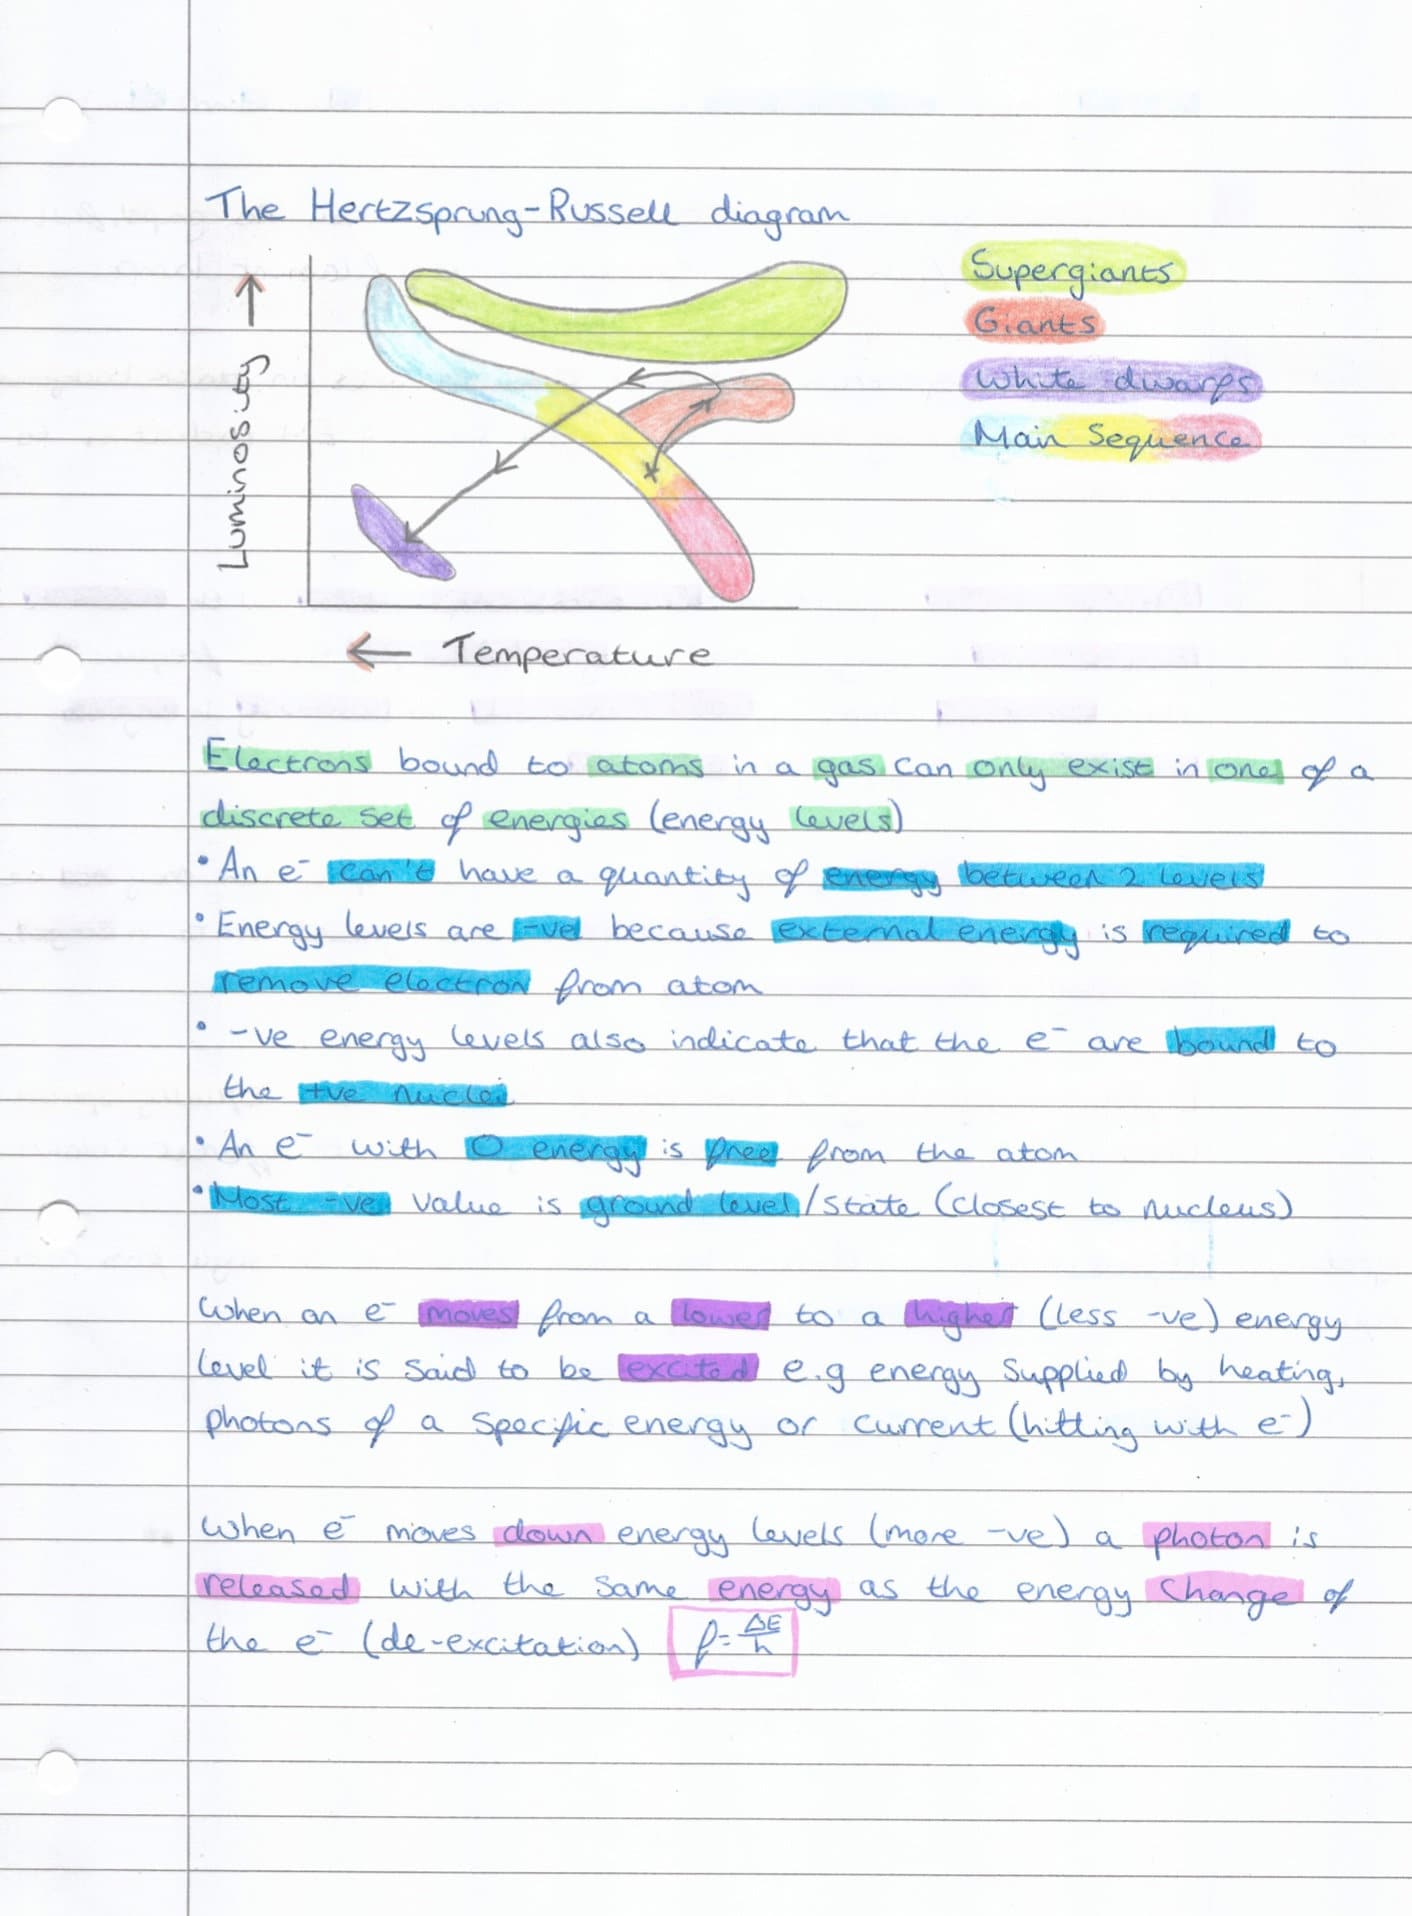 The Hertzsprung-Russell diagram
Supergiants
Giants
White dwarfs
Main Sequence
Luminosity
← Temperature
Electrons bound to atoms in a gas can only exist in one of a
discrete set of energies (energy levels)
• An e⁻ can't have a quantity of energy between 2 levels
• Energy levels are -ve because external energy is required to
remove electron from atom
• -ve energy levels also indicate that the e⁻ are bound to
the +ve nuclei
• An e⁻ with 0 energy is free from the atom
• Most -ve value is ground level/state (closest to nucleus)
When an e⁻ moves from a lower to a higher (less -ve) energy
level it is said to be excited e.g energy supplied by heating,
photons of a specific energy or current (hitting with e⁻)
When e⁻ moves down energy levels (more -ve) a photon is
released with the same energy as the energy change of
the e⁻ (de-excitation) f = ΔE/h